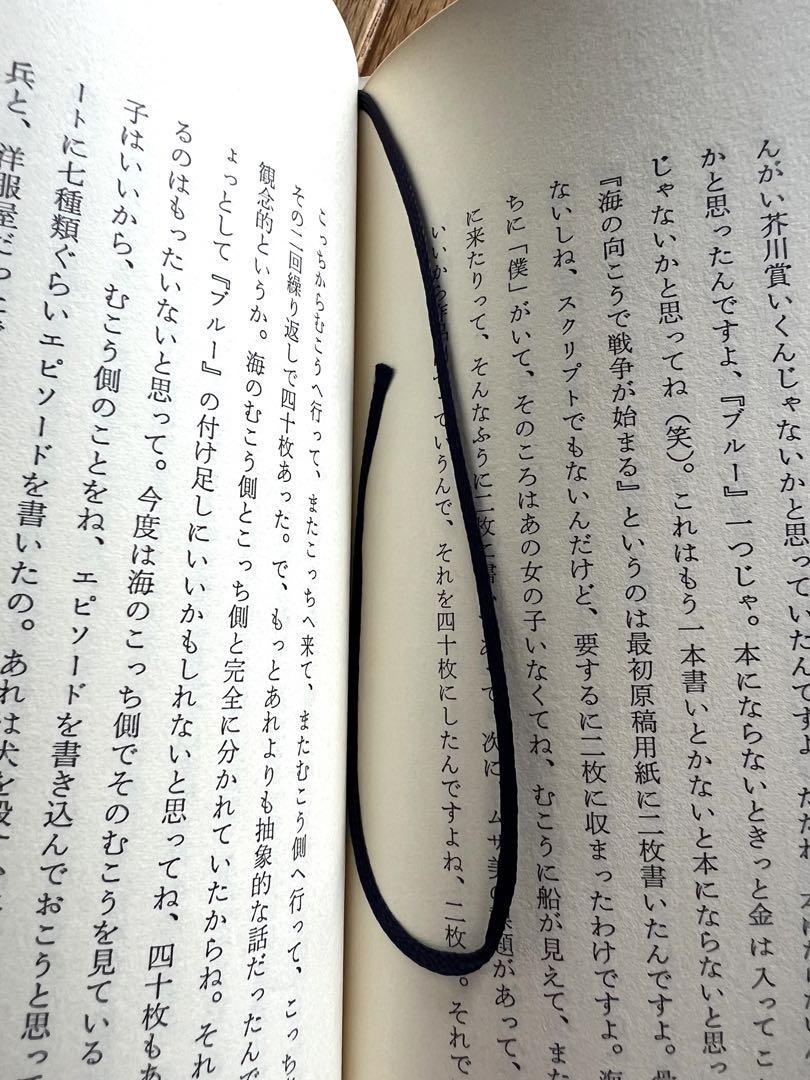 んがい芥川賞いくんじゃないかと思っていたんですよ
かと思ったんですよ、『ブルー』一つじゃ。本にならないときっと金は入ってこ
じゃないかと思ってね（笑）。これはもう一本書いとかないと本にならないと思っ
『海の向こうで戦争が始まる』というのは最初原稿用紙に二枚書いたんですよ。
ないしね、スクリプトでもないんだけど、要するに二枚に収まったわけですよ。海
ちに「僕」がいて、そのころはあの女の子いなくてね、むこうに船が見えて、また
に来たりって、そんなふうに二枚に書いてあって、次に、ムサ美の課題があって、
っていうんで、それを四十枚にしたんですよね、二枚。それで
こっちからむこうへ行って、またこっちへ来て、またむこう側へ行って、こっち
その二回繰り返しで四十枚あった。で、もっとあれよりも抽象的な話だったんで
観念的というか。海のむこう側とこっち側と完全に分かれていたからね。それ
ょっとして『ブルー』の付け足しにいいかもしれないと思ってね、四十枚もあ
るのはもったいないと思って。今度は海のこっち側でそのむこうを見ている
子はいいから、むこう側のことをね、エピソードを書き込んでおこうと思って
ートに七種類ぐらいエピソードを書いたの。あれは犬を殺す
兵と、洋服屋だった